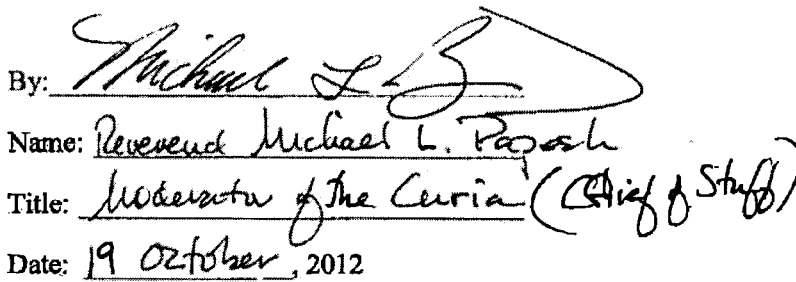 By: Michael L
Name: Reverend Michael L. Papesh
Title: Moderator of the Curia (Chief of Staff)
Date: 19 October, 2012